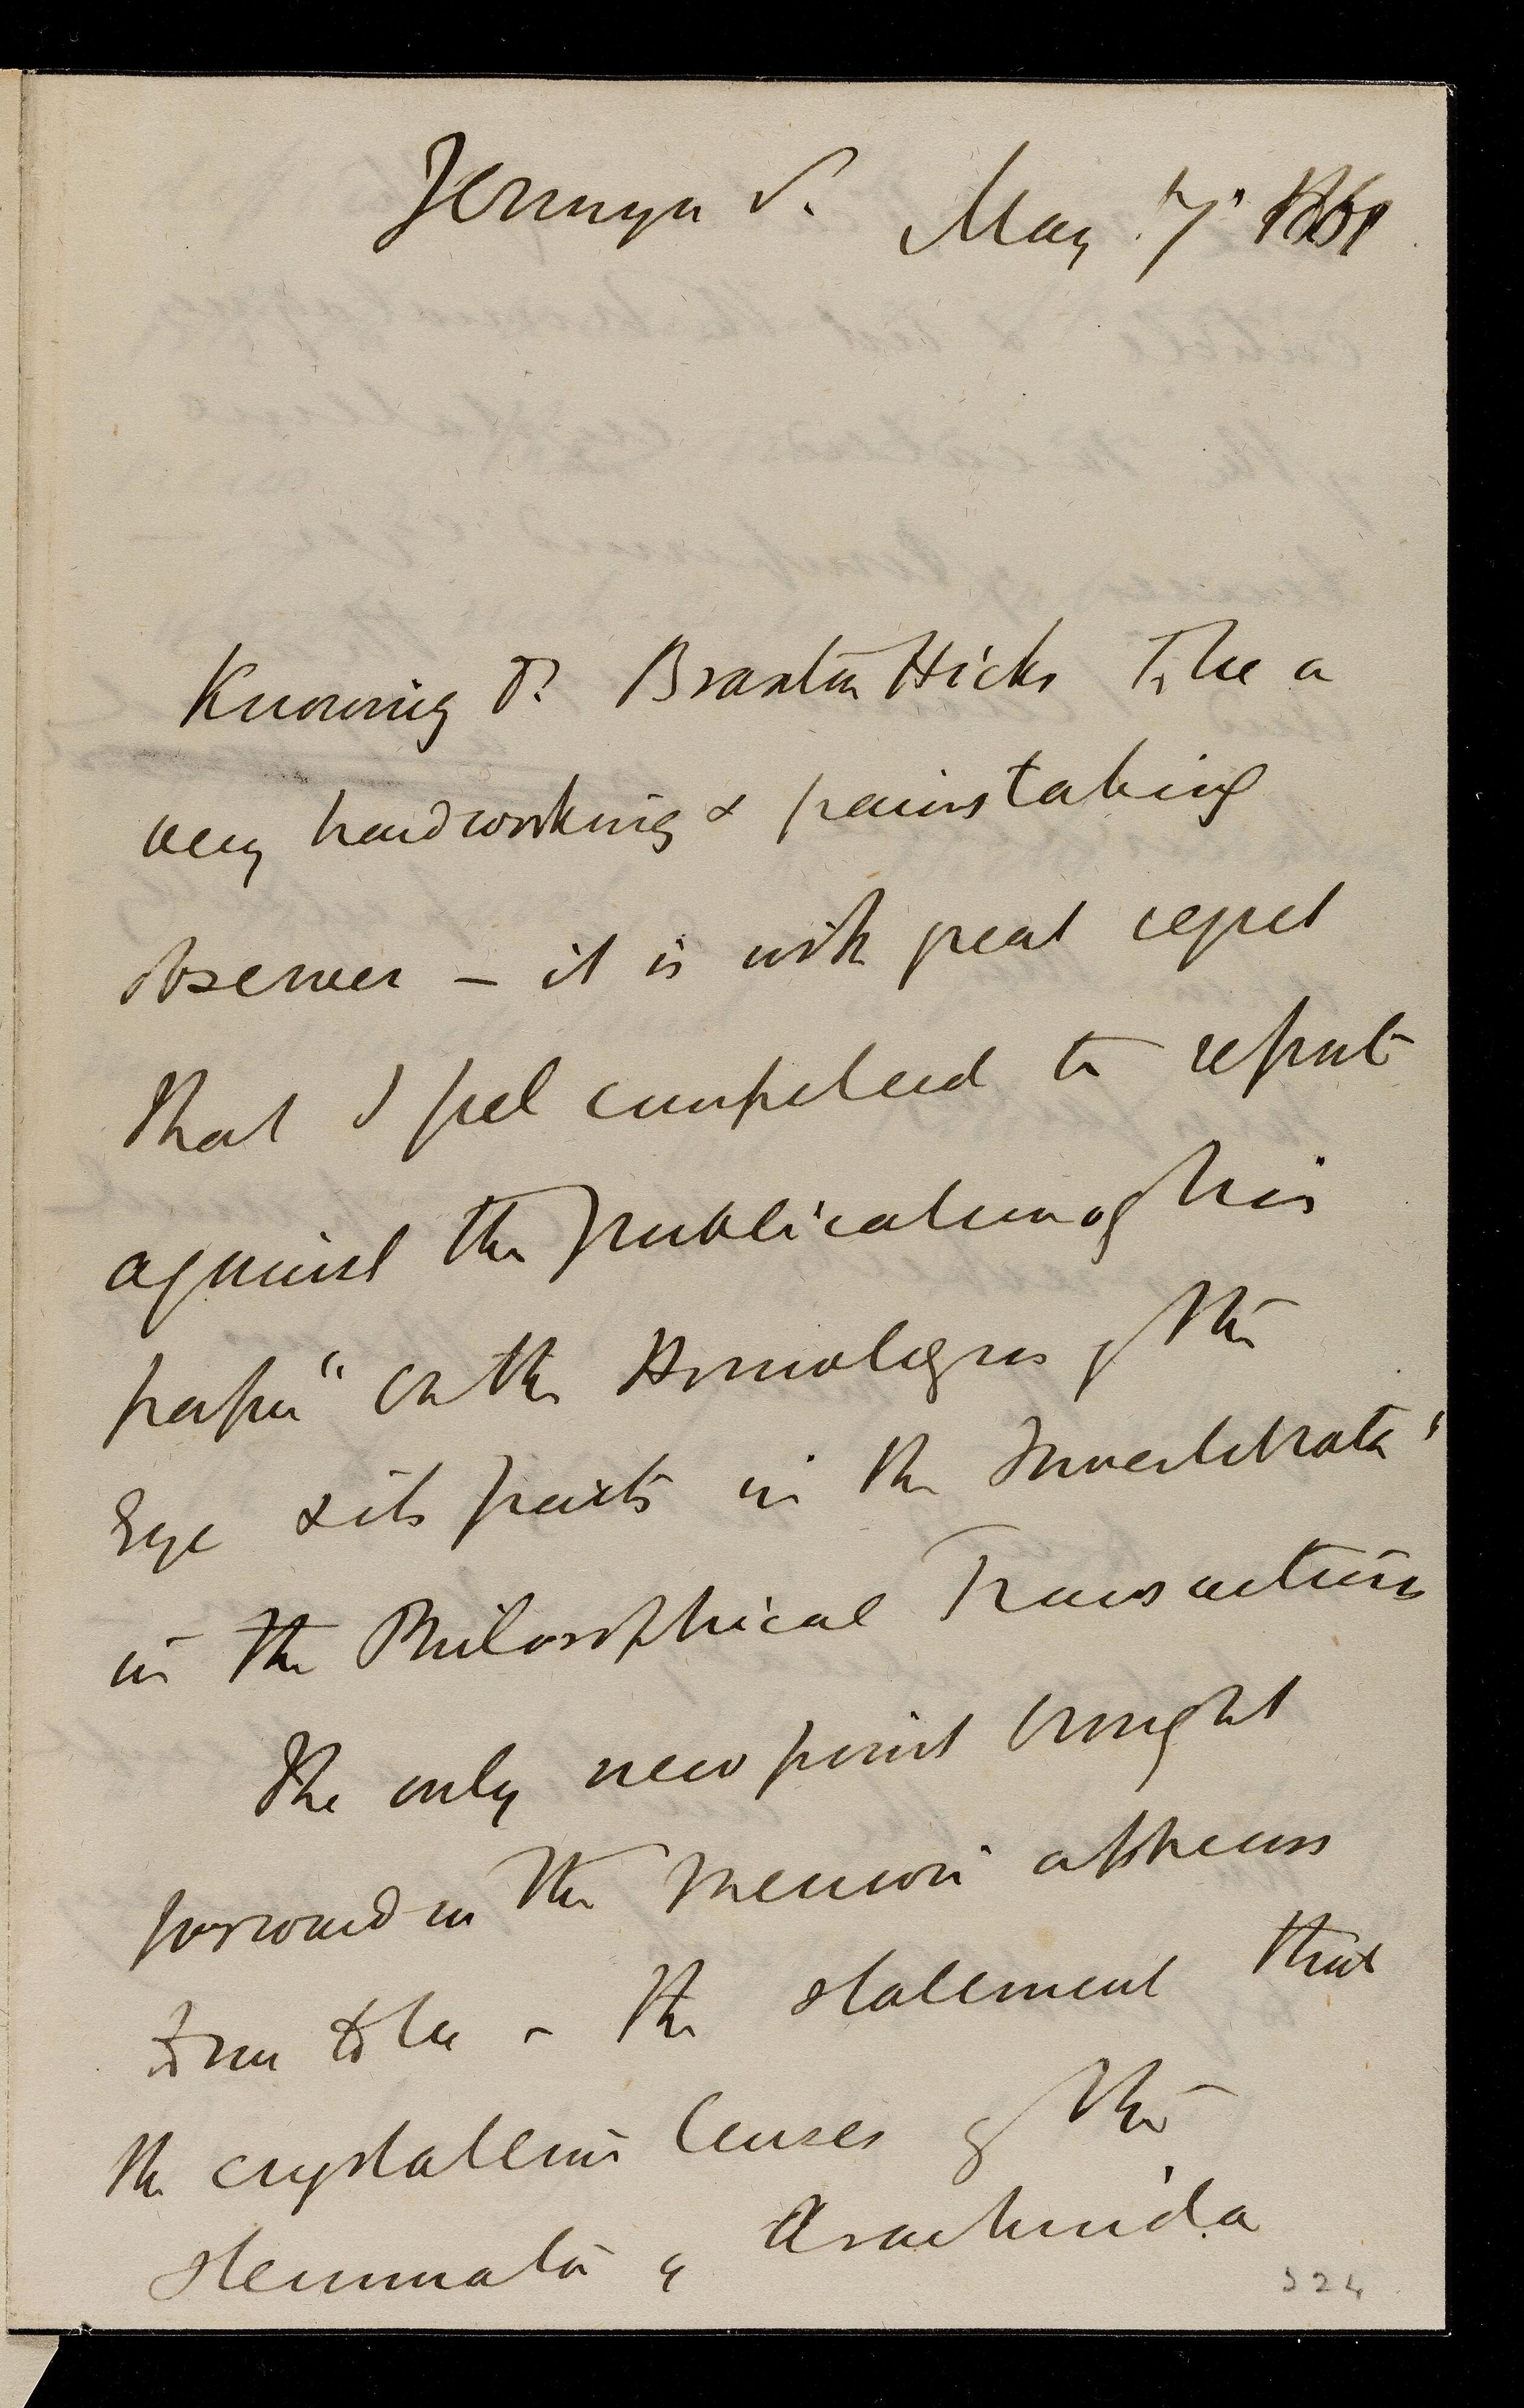 Jermyn S. May 7. 1861
Knowing Dr Braxton Hicks to be a
very hardworking & painstaking
observer – it is with great regret
that I feel compelled to report
against the publication of his
paper "On the Homologies of the
Eye & its parts in the Invertebrata"
in the Philosophical Transactions
The only new point brought
forward in the Memoir appears
to me to be – the statement that
the crystalline lenses of the
stemmata of Arachnida
324